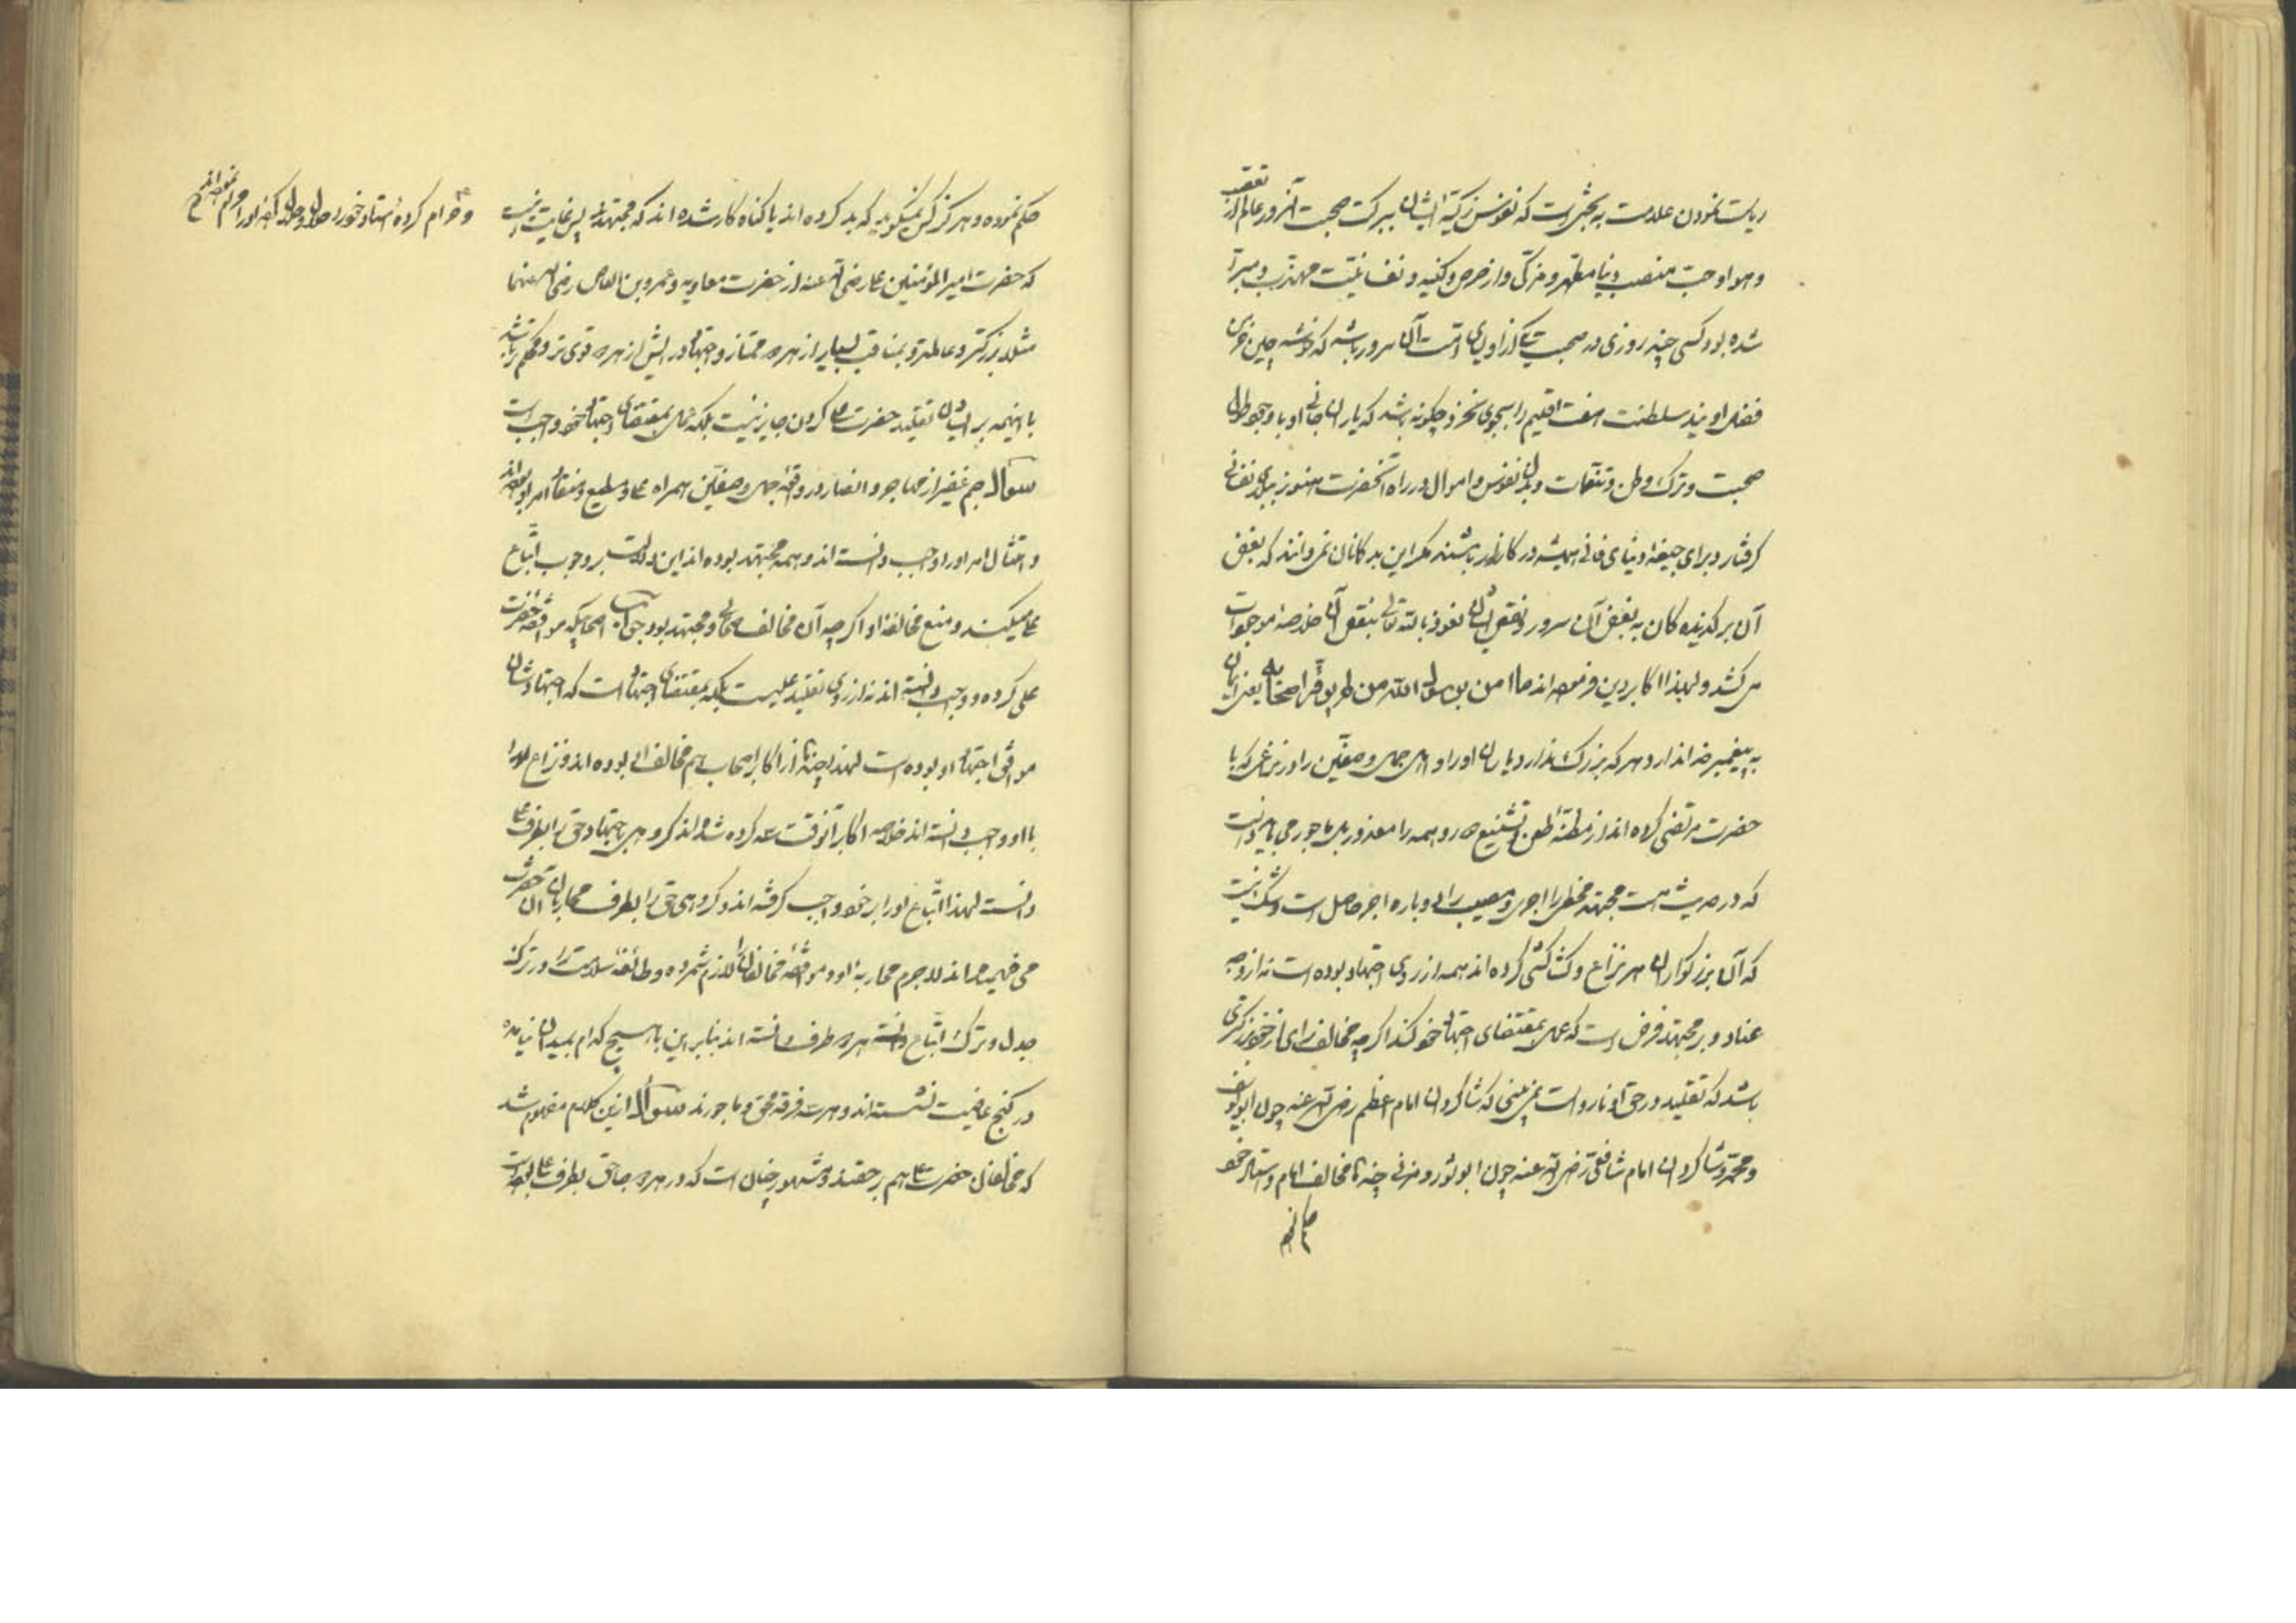 ریاست نمودن علامت بدبختی است که نفوس زکیهٔ ایشان ببرکت صحبت آنسرور عالم از تعصب
و هوا و حب منصب دنیا مطهر و مزکی و از حرص و کینه و نفسانیت مهذب و مبرا
شده بود کسی چند روزی در صحبت یکی از اولیای امت آن سرور باشد که خوشه چین خرمن
فضل اویند سلطنت هفت اقلیم را بجوی نخرد چگونه باشد که یاران جانی او با وجود طول
صحبت و ترک وطن و تنعمات و بذل نفوس و اموال در راه آنحضرت هنوز برذایل نفسانی
گرفتار و برای جیفهٔ دنیای فانی همیشه در کارزار باشند مگر این بدگمانان نمی دانند که بغض
آن برگزیده کان به بغض آن سرور و نقص ایشان نعوذ بالله تعالی بنقص آن خلاصهٔ موجودات
می کشد و لهذا اکابر دین فرموده اند ما امن برسول الله من لم یوقر اصحابه یعنی ایمان
به پیغمبر خدا ندارد هر که بزرک ندارد یاران او را و اهل جمل و صفین را در نزاعی که با
حضرت مرتضی کرده اند از مظنهٔ طعن و تشنیع دور و همه را معذور بل ماجور می باید دانست
که در حدیث است مجتهد مخطی را اجری و مصیب را دو باره اجر حاصل است و شک نیست
که آن بزرگواران هر نزاع و کشاکشی کرده اند همه از روی اجتهاد بوده است نه از وجه
عناد و بر مجتهد فرض است که عمل بمقتضای اجتهاد خود کند اگرچه مخالف رای از خود بزرگتری
باشد که تقلید در حق او نارواست نمی بینی که شاگردان امام اعظم رضی الله عنه چون ابویوسف
و محمد و شاگردان امام شافعی رضی الله عنه چون ابوثور و مزنی چند جا مخالف امام و استاد خود
حکم نم
حکم نموده و هرگز کس نمیگوید که بد کرده اند یا گناه کار شده اند که مجتهدند پس غایت اینست
که حضرت امیر المؤمنین علی رضی الله عنه از حضرت معاویه و عمرو بن العاص رضی الله عنهما
مثلا بزرکتر و عالمتر و بمناقب بسیار از هر دو ممتاز و اجتهاد ایش از هر دو قوی تر و محکم تر باشد
با اینهمه بر ایشان تقلید حضرت علی کردن جایز نیست بلکه عمل بمقتضای اجتهاد خود واجب است
سوال جم غفیر از مهاجر و انصار در وقعهٔ جمل و صفین همراه علی و مطیع و منقاد امر او بوده اند
و امتثال امر او را واجب دانسته اند و همه مجتهد بوده اند این دلالت بر وجوب اتباع
علی میکند و منع مخالفت او اگر چه آن مخالف صحابی و مجتهد بود جواب اصحابیکه موافقت حضرت
علی کرده و واجب دانسته اند نه از روی تقلید علیست بلکه بمقتضای اجتهاد است که اجتهاد شان
موافق اجتهاد او بوده است لهذا چند تا از اکابر اصحاب هم مخالف او بوده اند و نزاع او را
با او واجب دانسته اند خلاصه اکابر آنوقت سه گروه شده اند گروهی باجتهاد حق را بطرف علی
دانست لهذا اتباع او را بر خود واجب گرفته اند و گروهی حق را بطرف محاربان آن حضرت
می فهمیده اند لاجرم محاربهٔ او و موافقت مخالفان را لازم شمرده و طائفهٔ سلامت را در ترک
جدل و ترک اتباع هر دو طرف دانسته اند بنابرین با هیچ کدام بمیدان نیامده
در کنج عافیت نشسته اند و هر سه فرقه محق و ماجورند سوال ازین کلام مفهوم شد
که مخالفان حضرت علی هم بر حقند و مشهور چنان است که در هر دو جا حق بطرف علی بوده است
و حرام کرده استاد خود را حلال و حلال کردهٔ او را حرام نموده اند صح